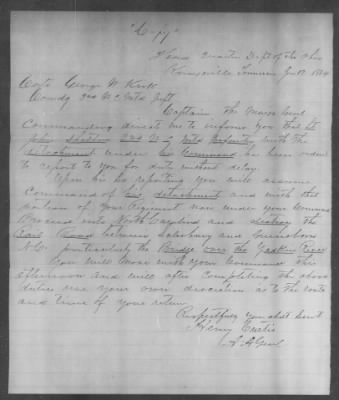 "Copy"
Head Quarters Dept of the Ohio
Knoxville Tennessee Jan 17 1864
Capt George W Kirk
Comdg 2nd N C Mtd Inft
Captain the Major Genl
Commanding directs me to inform you that
2nd N C Mtd Infantry with the
detachment under his Command has been ordered
to report to you for duty without delay.
Upon his reporting you will assume
Command of his detachment and with that
portion of your regiment now under your command
Proceed into North Carolina and destroy the
Rail Road between Salisbury and Greensboro
N.C. particularly the Bridge over the Yadkin River
You will move with your Command this
afternoon and will after Completing the above
duties use your own discretion as to the route
and time of your return
Respectfully your obdt Servt
Henry Curtis
A A Genl